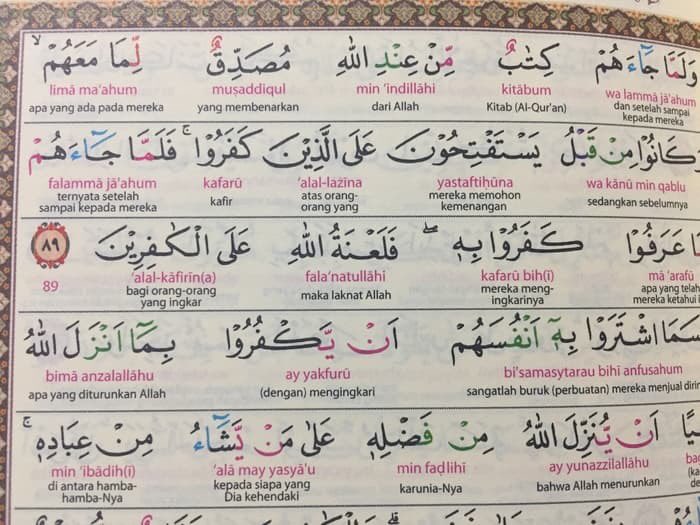 وَلَمَّا جَاۤءَهُمْ كِتٰبٌ مِّنْ عِنْدِ اللّٰهِ مُصَدِّقٌ لِّمَا مَعَهُمْۙ
wa lammā jā'ahum kitābum min 'indillāhi muṣaddiqul limā ma'ahum
dan setelah sampai kepada mereka Kitab (Al-Qur'an) dari Allah yang membenarkan apa yang ada pada mereka
وَكَانُوْا مِنْ قَبْلُ يَسْتَفْتِحُوْنَ عَلَى الَّذِيْنَ كَفَرُوْاۚ فَلَمَّا جَاۤءَهُمْ
wa kānū min qablu yastaftiḥūna 'alal-lażīna kafarū falammā jā'ahum
sedangkan sebelumnya mereka memohon kemenangan atas orang-orang yang kafir ternyata setelah sampai kepada mereka
عَرَفُوْا كَفَرُوْا بِهٖۖ فَلَعْنَةُ اللّٰهِ عَلَى الْكٰفِرِيْنَ ٨٩
mā 'arafū kafarū bih(ī) fala'natullāhi 'alal-kāfirīn(a) 89
apa yang telah mereka ketahui mereka mengingkarinya maka laknat Allah bagi orang-orang yang ingkar
اشْتَرَوْا بِهٖٓ اَنْفُسَهُمْ اَنْ يَّكْفُرُوْا بِمَآ اَنْزَلَ اللّٰهُ
bi'samasytarau bihī anfusahum ay yakfurū bimā anzalallāhu
sangatlah buruk (perbuatan) mereka menjual (dengan) mengingkari apa yang diturunkan Allah
اَنْ يُّنَزِّلَ اللّٰهُ مِنْ فَضْلِهٖ عَلٰى مَنْ يَّشَاۤءُ مِنْ عِبَادِهٖۚ
ay yunazzilallāhu min faḍlihī 'alā may yasyā'u min 'ibādih(ī)
bahwa Allah menurunkan karunia-Nya kepada siapa yang Dia kehendaki di antara hamba-hamba-Nya